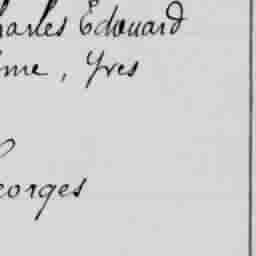 harles Edouard
me, Yves
eorges